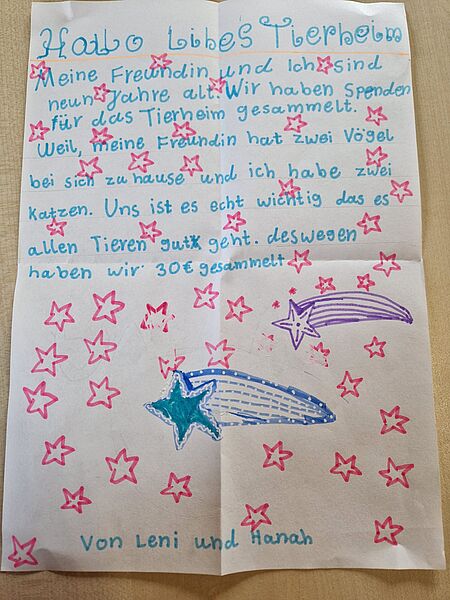 Hallo Libe's Tierheim
Meine Freundin und Ich sind
neun Jahre alt. Wir haben Spenden
für das Tierheim gesammelt.
Weil, meine Freundin hat zwei Vögel
bei sich zuhause und ich habe zwei
katzen. Uns ist es echt wichtig das es
allen Tieren gut geht. deswegen
haben wir 30€ gesammelt
Von Leni und Hanah